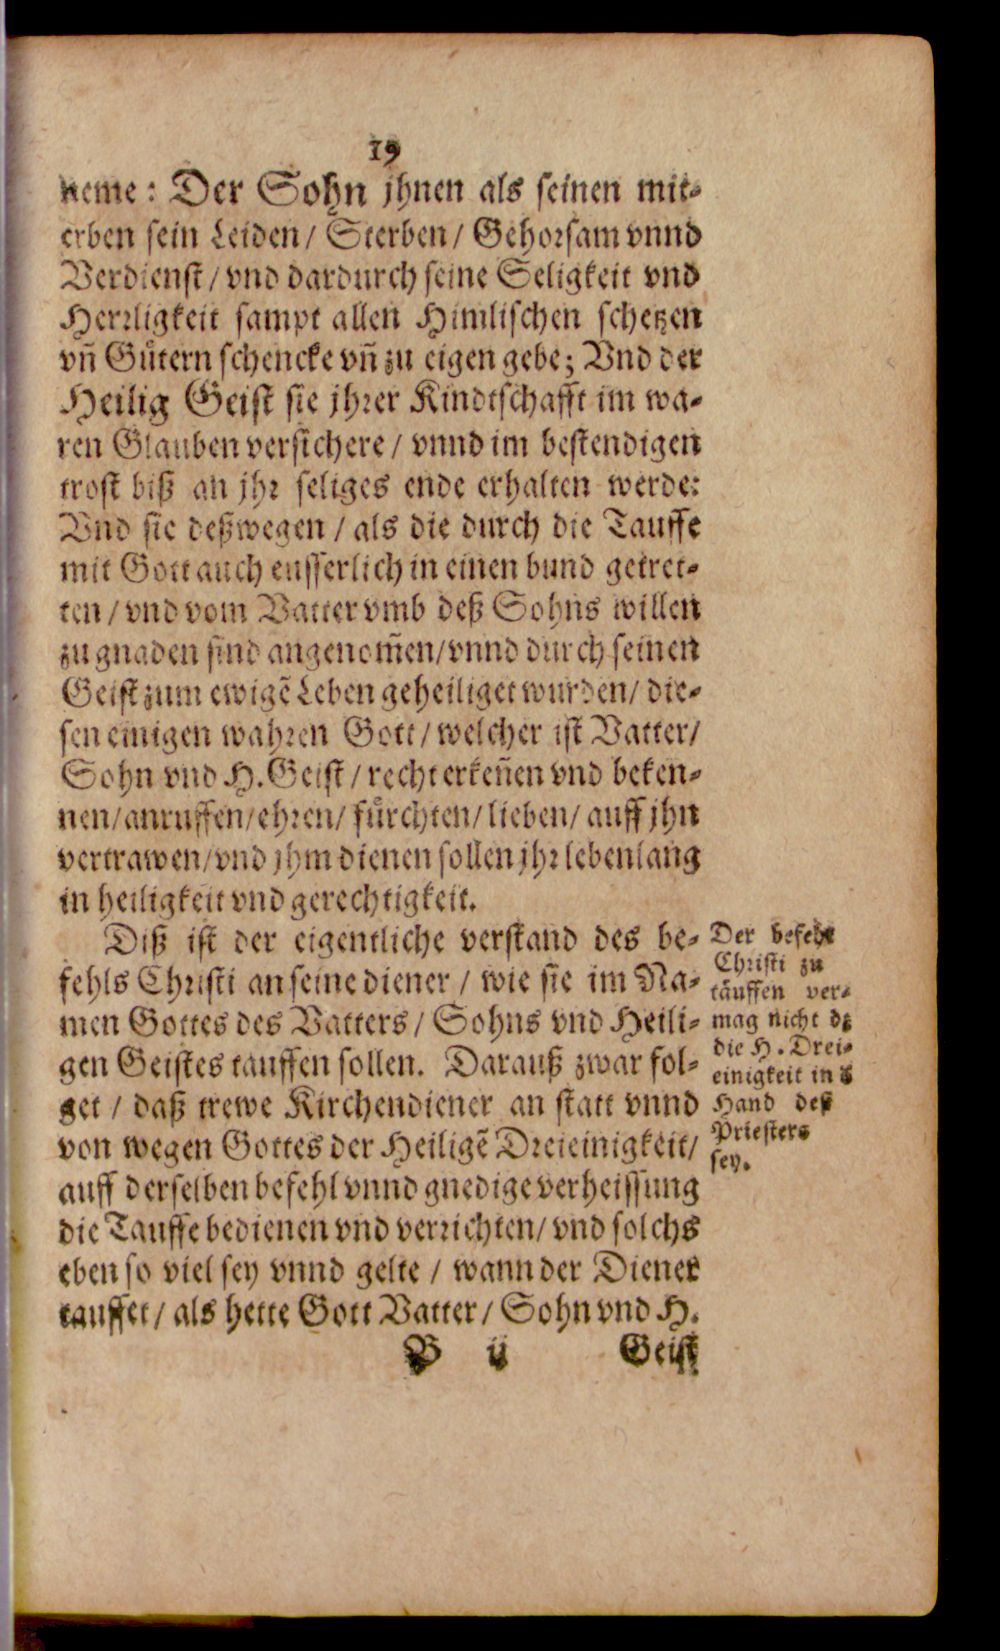 19
neme: Der Sohn jhnen als seinen mit-
erben sein Leiden/ Sterben/ Gehorsam vnnd
Verdienst/ vnd dardurch seine Seligkeit vnd
Herrligkeit sampt allen Himlischen schetzen
vñ Gütern schencke vñ zu eigen gebe; Vnd der
Heilig Geist sie jhrer Kindtschafft im wa-
ren Glauben versichere/ vnnd im bestendigen
trost biß an jhr seliges ende erhalten werde:
Vnd sie deßwegen/ als die durch die Tauffe
mit Gott auch eusserlich in einen bund getret-
ten/ vnd vom Vatter vmb deß Sohns willen
zu gnaden sind angenom̃en/ vnnd durch seinen
Geist zum ewigẽ Leben geheiliget wurden/ die-
sen einigen wahren Gott/ welcher ist Vatter/
Sohn vnd H. Geist/ recht erkeñen vnd beken-
nen/ anruffen/ ehren/ fürchten/ lieben/ auff jhn
vertrawen/ vnd jhm dienen sollen jhr lebenlang
in heiligkeit vnd gerechtigkeit.
Diß ist der eigentliche verstand des be-
fehls Christi an seine diener/ wie sie im Na-
men Gottes des Vatters/ Sohns vnd Heili-
gen Geistes tauffen sollen. Darauß zwar fol-
get/ daß trewe Kirchendiener an statt vnnd
von wegen Gottes der Heiligẽ Dreieinigkeit/
auff derselben befehl vnnd gnedige verheissung
die Tauffe bedienen vnd verrichten/ vnd solchs
eben so viel sey vnnd gelte/ wann der Diener
tauffet/ als hette Gott Vatter/ Sohn vnd H.
B ij Geist
Der befehl
Christi zu
täuffen ver-
mag nicht dz
die H. Drei-
einigkeit in d
Hand deß
Priesters
sey.